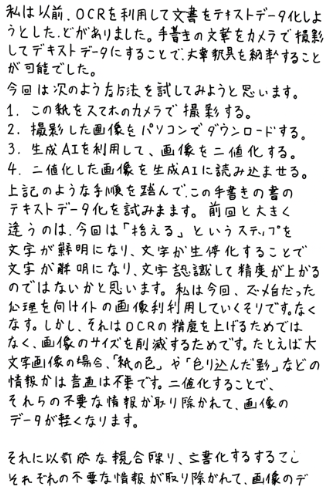 私は以前、OCRを利用して文書をテキストデータ化しよ
うとしたことがありました。手書きの文章をカメラで撮影
してデキストデータにすることで、
が可能でした。
今回は次のような方法を試してみようと思います。
1. この紙をスマホのカメラで撮影する。
2. 撮影した画像をパソコンでダウンロードする。
3. 生成AIを利用して、画像を二値化する。
4. 二値化した画像を生成AIに読み込ませる。
上記のような手順を踏んで、この手書きの書の
テキストデータ化を試みます。前回と大きく
違うのは、今回は「拾える」というステップを
文字が鮮明になり、文字が生停化することで
文字が鮮明になり、文字認識して精度が上がる
のではないかと思います。私は今回、
の画像利利用していくそりです。なく
なす。しかし、それはOCRの精度を上げるためでは
なく、画像のサイズを削減するためです。たとえば大
文字画像の場合、「紙の色」や「色り込んだ影」などの
情報かは普直は不要です。二値化することで、
それらの不要な情報が取り除かれて、画像の
データが軽くなります。
それに以
それぞれの不要な情報が取り除かれて、画像のデ